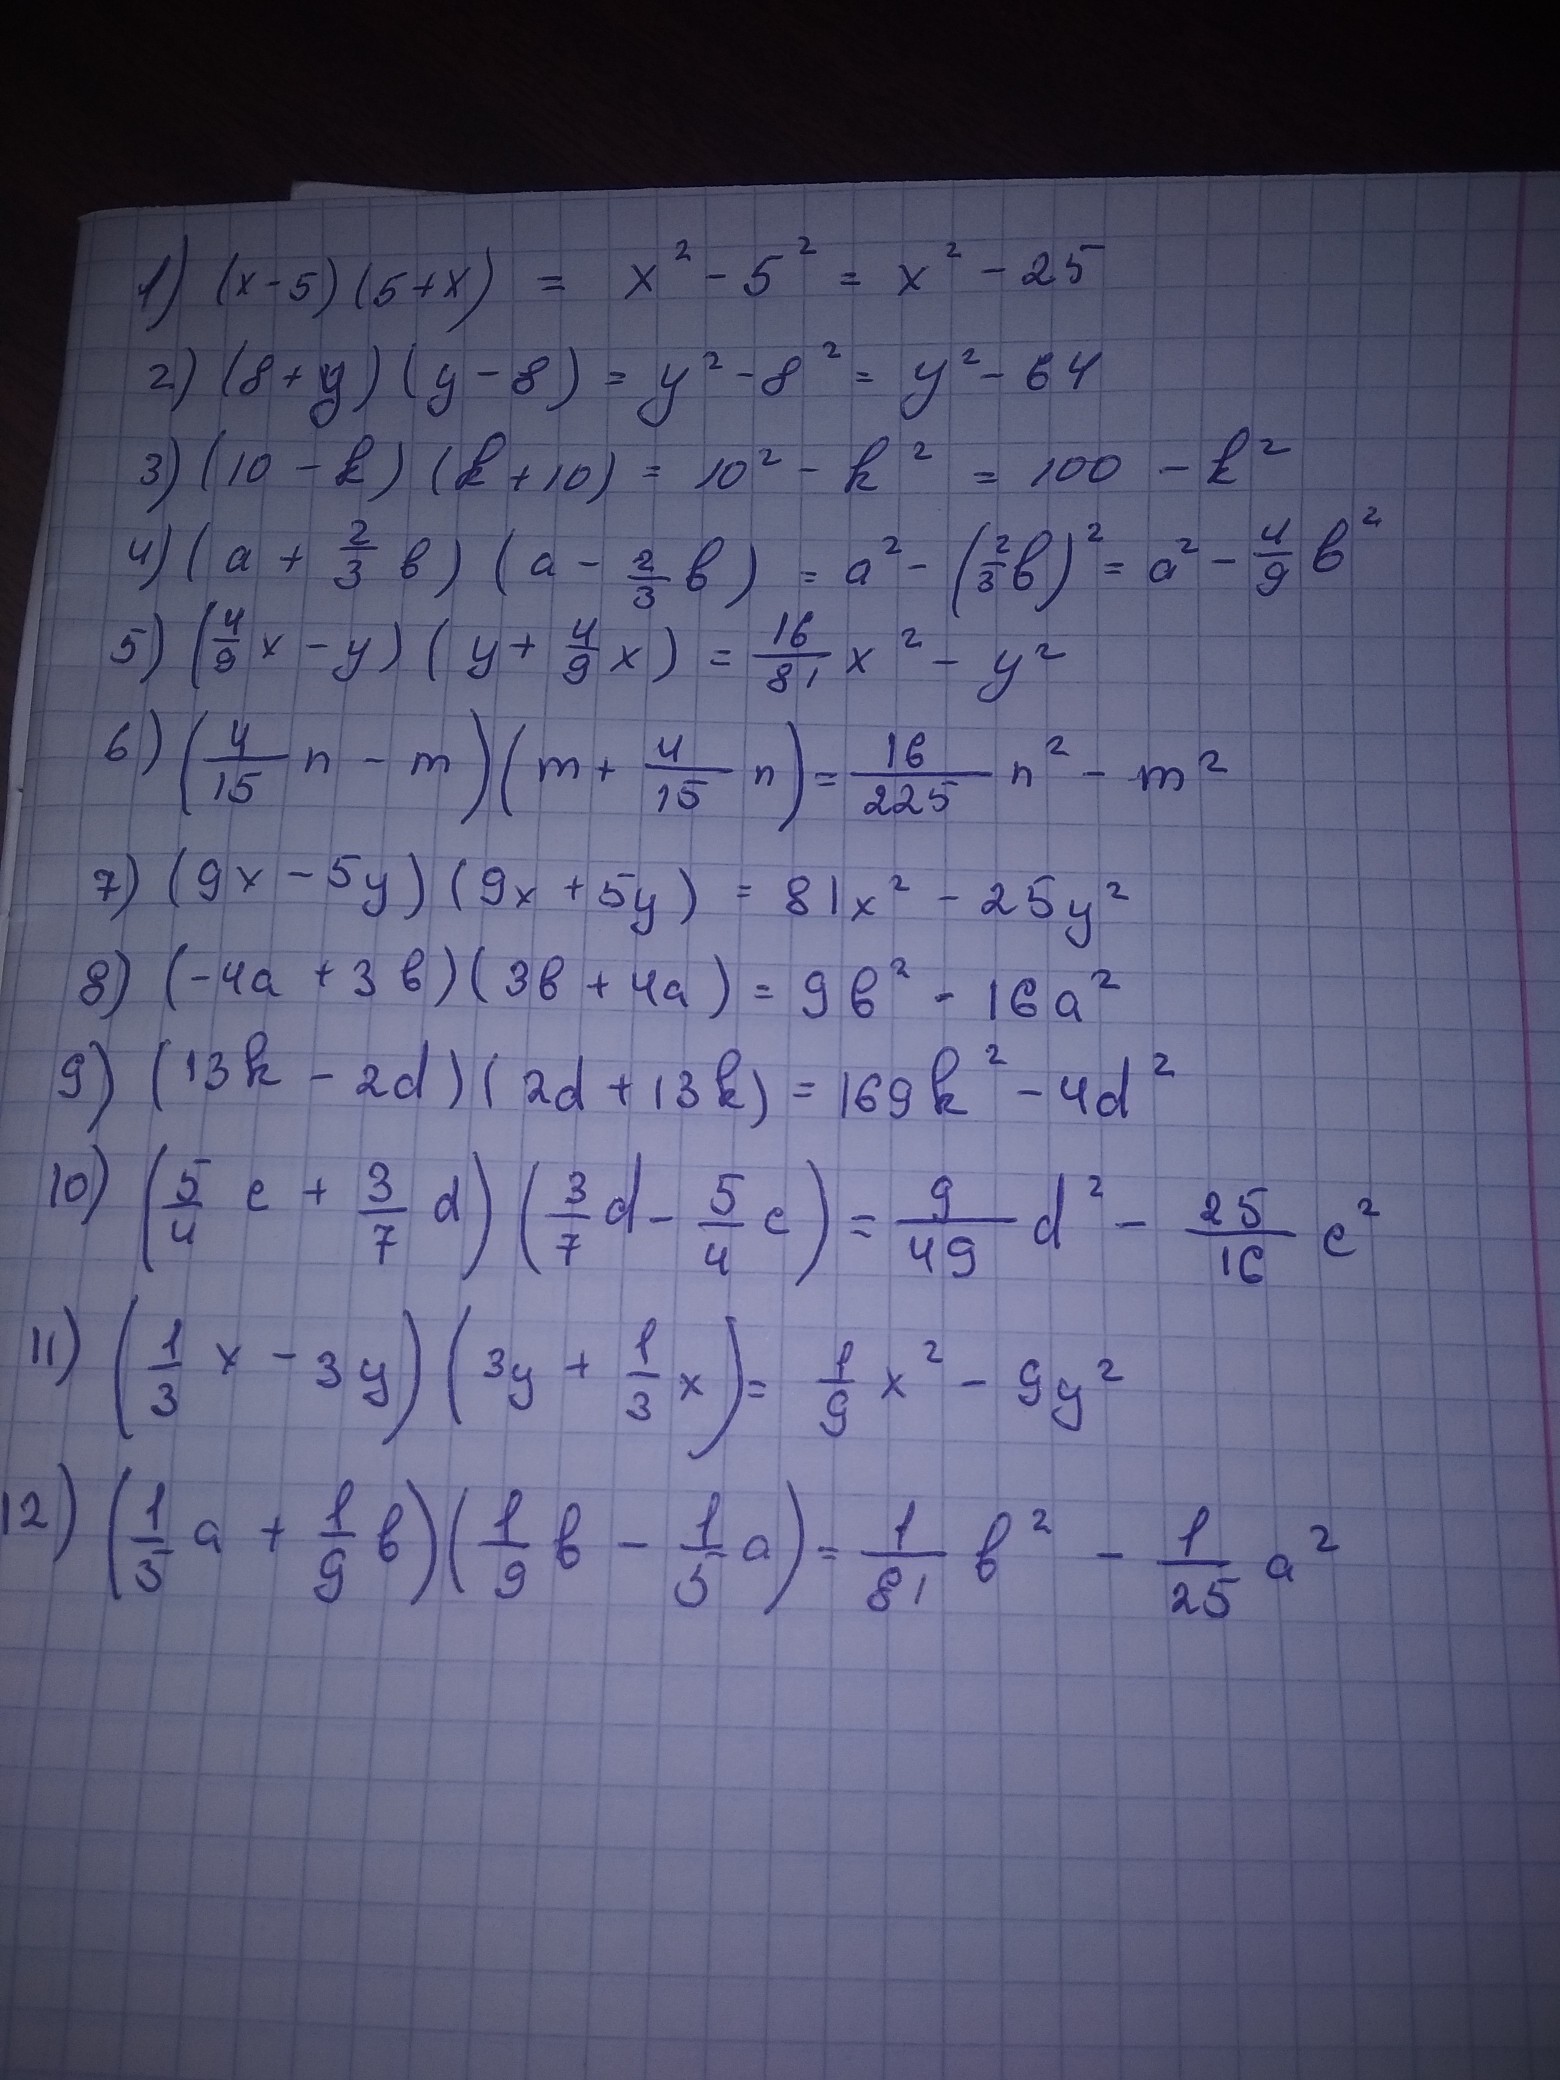 1) (x-5)(5+x) = x² - 5² = x² - 25
2) (8+y)(y-8) = y² - 8² = y² - 64
3) (10-k)(k+10) = 10² - k² = 100 - k²
4) (a + 2/3 в)(a - 2/3 в) = a² - (2/3 в)² = a² - 4/9 в²
5) (4/9 x - y)(y + 4/9 x) = 16/81 x² - y²
6) (4/15 n - m)(m + 4/15 n) = 16/225 n² - m²
7) (9x - 5y)(9x + 5y) = 81x² - 25y²
8) (-4a + 3в)(3в + 4a) = 9в² - 16a²
9) (13k - 2d)(2d + 13k) = 169k² - 4d²
10) (5/4 c + 3/7 d)(3/7 d - 5/4 c) = 9/49 d² - 25/16 c²
11) (1/3 x - 3y)(3y + 1/3 x) = 1/9 x² - 9y²
12) (1/5 a + 1/9 в)(1/9 в - 1/5 a) = 1/81 в² - 1/25 a²